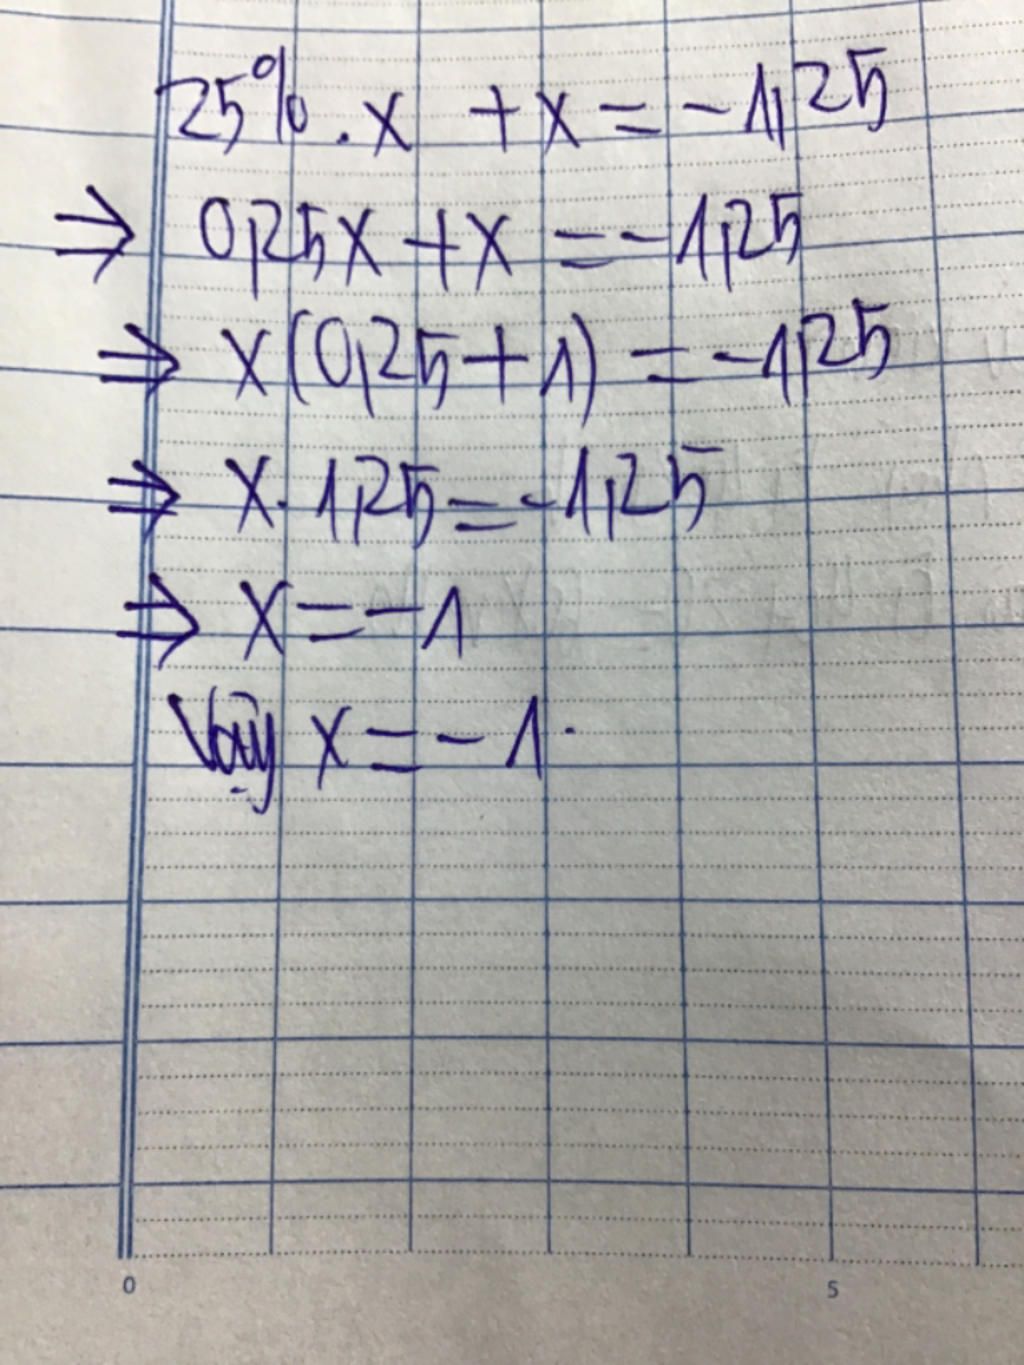 25%.x + x = -1,25
⇒ 0,25x + x = -1,25
⇒ x(0,25+1) = -1,25
⇒ x. 1,25 = -1,25
⇒ x = -1
Vậy x = -1.
0 5